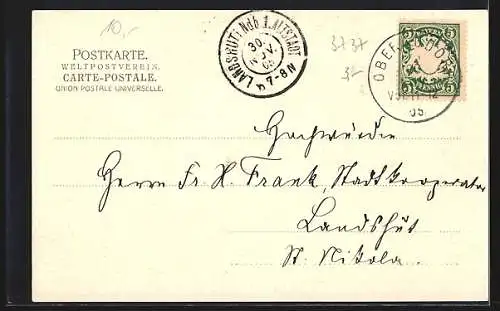 10,-
POSTKARTE.
WELTPOSTVEREIN.
CARTE-POSTALE.
UNION POSTALE UNIVERSELLE.
LANDSHUT i/Ndb 1. ALTSTADT
30.
NOV.
05
7-8N
3737
5
PFENNIG
05
Hochwürden
Herrn Fr. X. Frank, Stadtkooperator
Landshut
St. Nikola.